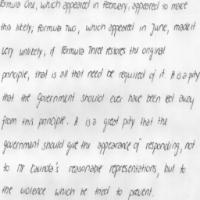 formula One, which appeared in February, appeared to make
this likely; formula two, which appeared in June, made it
very unlikely; if formula Three restores the original
principle, that is all that need be required of it. It is a pity
that the Government should ever have been led away
from this principle. It is a great pity that the
government should give the appearance of responding, not
to Mr Kaunda's reasonable representations, but to
the violence which he tried to prevent.